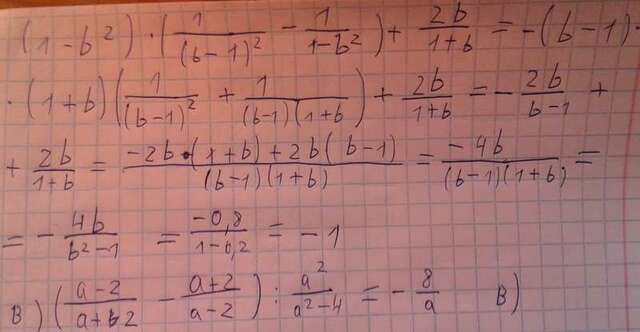 (1-b²)·(1/(b-1)² - 1/(1-b²)) + 2b/(1+b) = -(b-1)·
·(1+b)(1/(b-1)² + 1/((b-1)(1+b))) + 2b/(1+b) = -2b/(b-1) +
+ 2b/(1+b) = (-2b·(1+b)+2b(b-1))/((b-1)(1+b)) = -4b/((b-1)(1+b)) =
= -4b/(b²-1) = -0,8/(1-0,2) = -1
в) ((a-2)/(a+2) - (a+2)/(a-2)) : a²/(a²-4) = -8/a в)